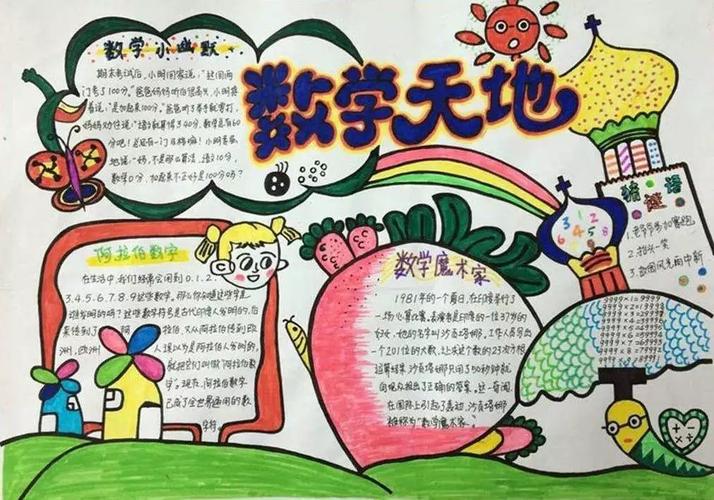 数学天地
数学小幽默
期末考试后，小明回家说："这回两
门考了100分。"爸爸妈妈听后很高兴，小明接
着说："是加起来100分。"爸爸听了举手就要打，
妈妈劝住说："语文就算得了40分，数学总有60
分吧！总还有一门及格嘛！小明委屈
地说："妈，不是那么算法，语文10分，
数学0分，加起来不正好是100分吗？
阿拉伯数字
在生活中，我们经常会用到0.1.2.
3.4.5.6.7.8.9这些数字。那么你知道这些字是
谁发明的吗？这些数字符号是古代印度人发明的，后
来传到了阿拉伯，又从阿拉伯传到欧
洲，欧洲人误以为是阿拉伯人发明的，
就把它们叫做"阿拉伯数
字"。现在，阿拉伯数字
已成了全世界通用的数
字符。
数学魔术家
1981年的一个夏日，在印度举行了
一场心算比赛。表演者是印度的一位37岁的
妇女，她的名字叫沙贡塔娜。工作人员写出
一个201位的大数，让求这个数的23次方根
运算结果沙贡塔娜只用了50秒钟就
向观众报出了正确的答案。这一奇闻，
在国际上引起了轰动，沙贡塔娜
被称为"数学魔术家"。
猜谜语
1.老爷爷参加赛跑
2.抬头一笑
3.
3 1 2
4 5 8
6
9999×1=9999
+ −
× ÷